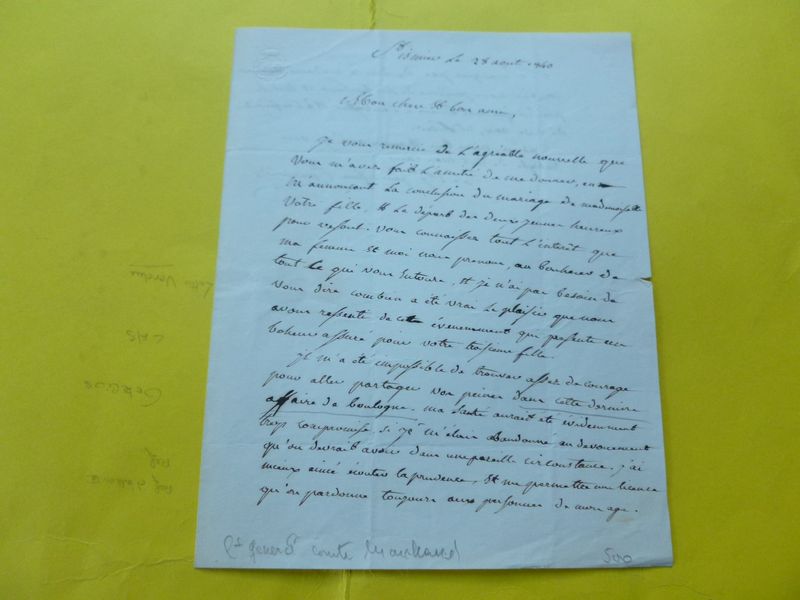 St ismier le 28 aout 1840
Mon cher et bon ami,
Je vous remercie de l'agréable nouvelle que
vous m'avez fait l'amitié de me donner, en
m'annoncant la conclusion du mariage de mademoiselle
votre fille, et le départ des deux jeunes heureux
pour vesoul. vous connaissez tout l'interêt que
ma femme et moi nous prenons, au bonheur de
tout ce qui vous entoure, et je n'ai pas besoin de
vous dire combien a été vrai le plaisir que nous
avons ressenti de cet évenement qui presente un
boheur assuré pour votre troisieme fille.
Je m'a été impossible de trouver assez de courage
pour aller partager vos peines dans cette derniere
affaire de boulogne. ma santé aurait été évidemment
trop compromise si je m'étais abandonné au devouement
qu'on devrait avoir dans une pareille circonstance. j'ai
mieux aimé écouter la prudence, et me permettre une licence
qu'on pardonne toujours aux personnes de mon age.
Gt general comte Marchand
500